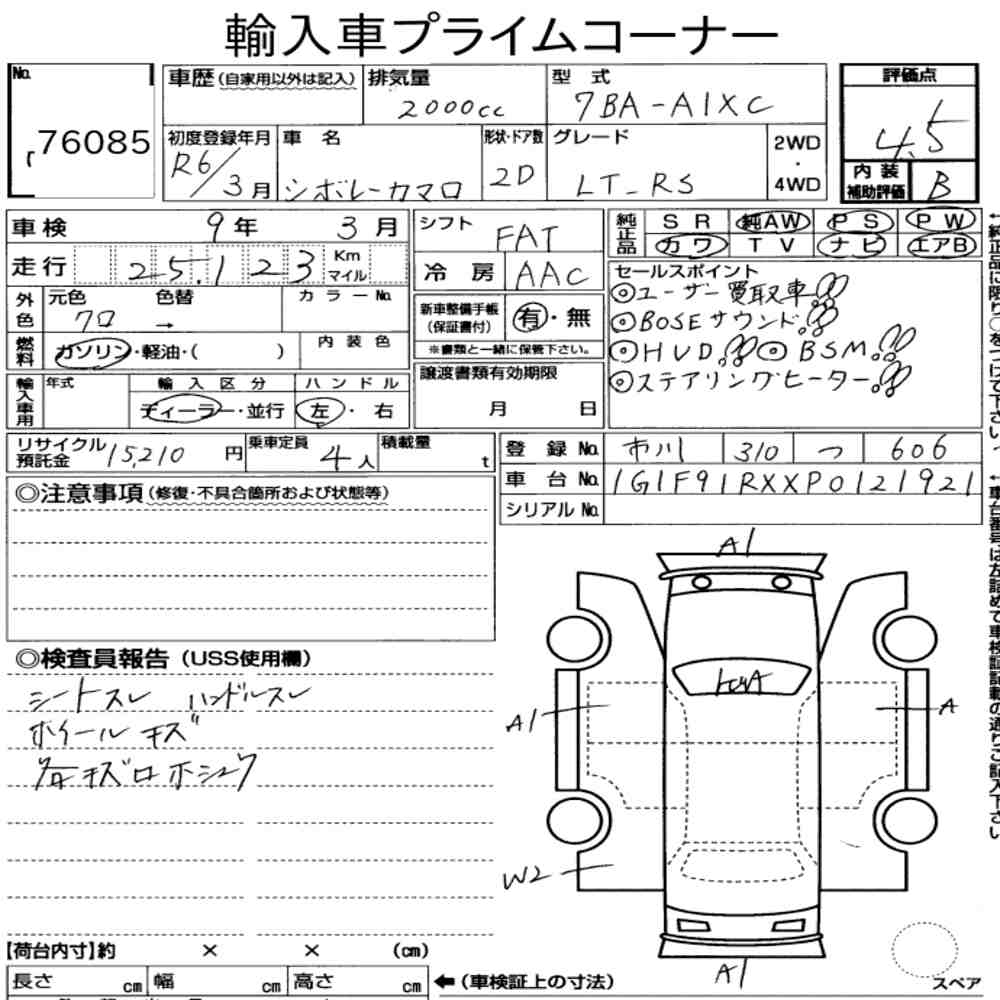 輸入車プライムコーナー
No. 76085
車歴(自家用以外は記入) 排気量 2000cc 型 式 7BA-A1XC
評価点 4.5
初度登録年月 R6/3月 車 名 シボレーカマロ 形状・ドア数 2D グレード LT-RS 2WD・4WD
内 装 補助評価 B
車検 9年 3月 シフト FAT
純正品 SR 純AW PS PW
カワ TV ナビ エアB
走行 25,123 Km マイル 冷 房 AAC
セールスポイント
◎ユーザー買取車!!
◎BOSEサウンド!!
◎HUD!! ◎BSM!!
◎ステアリングヒーター!!
外色 元色 クロ 色替 → カラーNo.
新車整備手帳(保証書付) 有・無
※書類と一緒に保管下さい。
燃料 ガソリン・軽油・( ) 内装色
輸入車用 年式 輸入区分 ディーラー・並行 ハンドル 左・右
譲渡書類有効期限 月 日
リサイクル預託金 15,210円 乗車定員 4人 積載量 t
登 録 No. 市川 310 つ 606
車 台 No. 1G1F91RXXP0121921
シリアルNo.
◎注意事項(修復・不具合箇所および状態等)
◎検査員報告(USS使用欄)
シートスレ ハンドルスレ
ホイールキズ
A1
A1
A
W2
A1
【荷台内寸】約 × × (cm)
長さ cm 幅 cm 高さ cm ←(車検証上の寸法)
スペア
↑純正品に限り○をつけて下さい。
↑車台番号は左詰めで車検証記載の通りご記入下さい